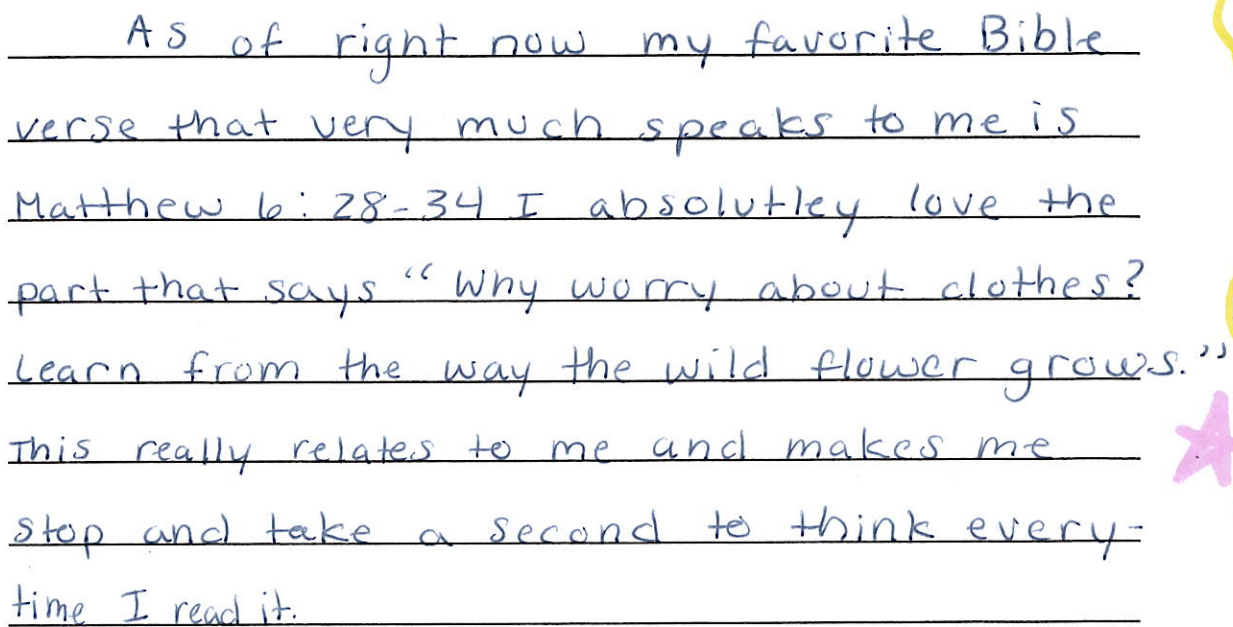 As of right now my favorite Bible
verse that very much speaks to me is
Matthew 6:28-34 I absolutley love the
part that says "Why worry about clothes?
Learn from the way the wild flower grows."
This really relates to me and makes me
stop and take a second to think every-
time I read it.